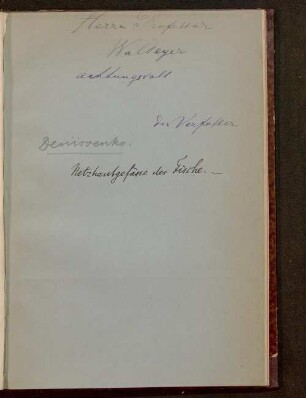 Herrn Professor
Waldeyer
achtungsvoll
der Verfasser
Denissenko.
Netzhautgefässe der Fische. —